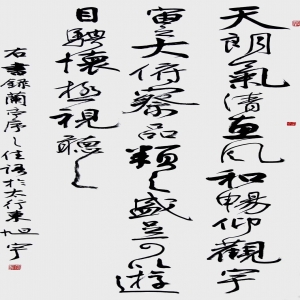 天朗氣清惠風和暢仰觀宇
宙之大俯察品類之盛足可遊
目騁懷極視聽之
右書録蘭亭序之佳語於太行東旭宇